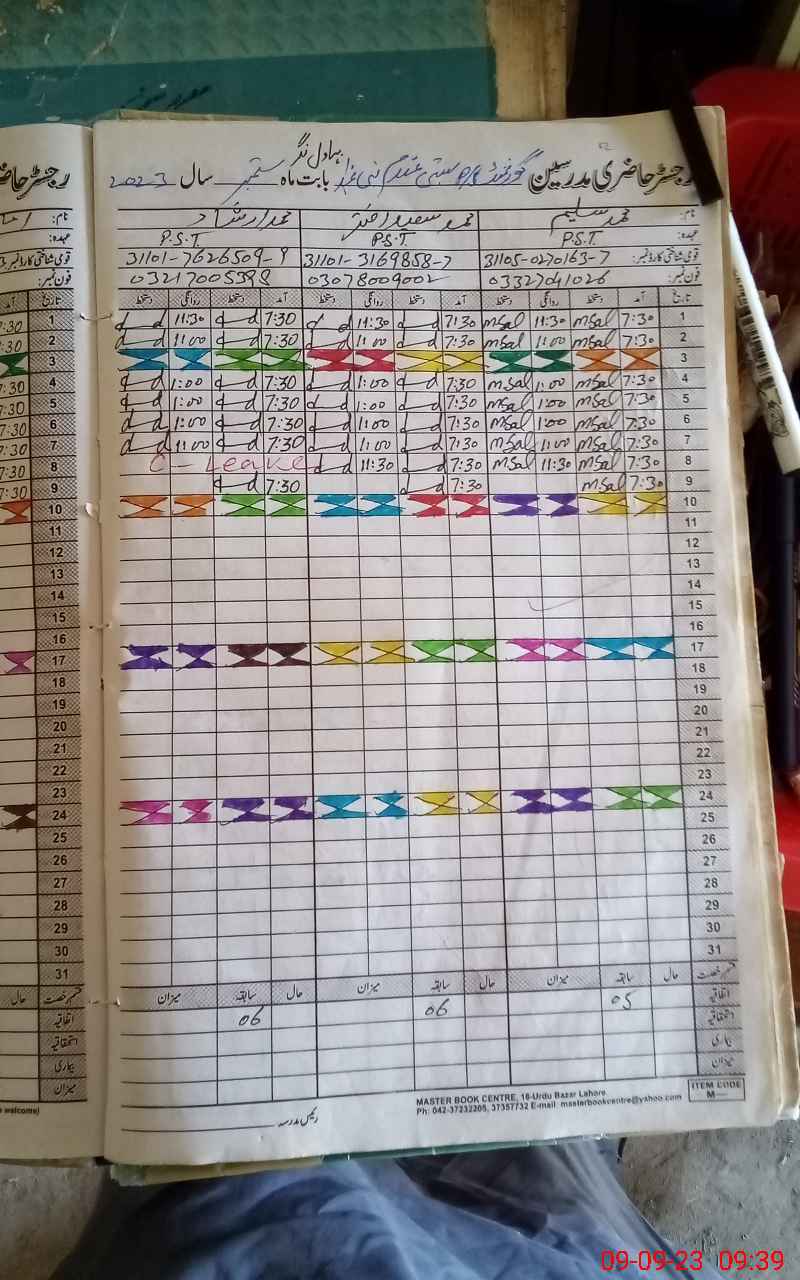 بہاول نگر
رجسٹر حاضری مدرسین گورنمنٹ بابت ماہ ستمبر سال 2023
نام: محمد سلیم محمد سعید اختر محمد ارشاد
عہدہ: P.S.T P.S.T. P.S.T
قومی شناختی کارڈ نمبر: 31105-0270163-7 31101-3169858-7 31101-7626509-9
فون نمبر: 03327041026 03078009002 03217005398
تاریخ آمد دستخط روانگی دستخط آمد دستخط روانگی دستخط آمد دستخط روانگی دستخط
1 7:30 mSal 11:30 mSal 7:30 11:30 7:30 11:30
2 7:30 mSal 11:00 mSal 7:30 11:00 7:30 11:00
3
4 7:30 mSal 1:00 mSal 7:30 1:00 7:30 1:00
5 7:30 mSal 1:00 mSal 7:30 1:00 7:30 1:00
6 7:30 mSal 1:00 mSal 7:30 1:00 7:30 1:00
7 7:30 mSal 11:00 mSal 7:30 11:00 7:30 11:00
8 7:30 mSal 11:30 mSal 7:30 11:30 C - Leave
9 7:30 mSal 7:30 7:30
10
11
12
13
14
15
16
17
18
19
20
21
22
23
24
25
26
27
28
29
30
31
قسم رخصت حال سابقہ میزان حال سابقہ میزان حال سابقہ میزان
اتفاقیہ 05 06 06
استحقاقیہ
بیماری
میزان
رئیس مدرسہ
MASTER BOOK CENTRE, 16-Urdu Bazar Lahore.
Ph: 042-37232205, 37357732 E-mail: masterbookcentre@yahoo.com
ITEM CODE
M—
welcome)
09-09-23 09:39